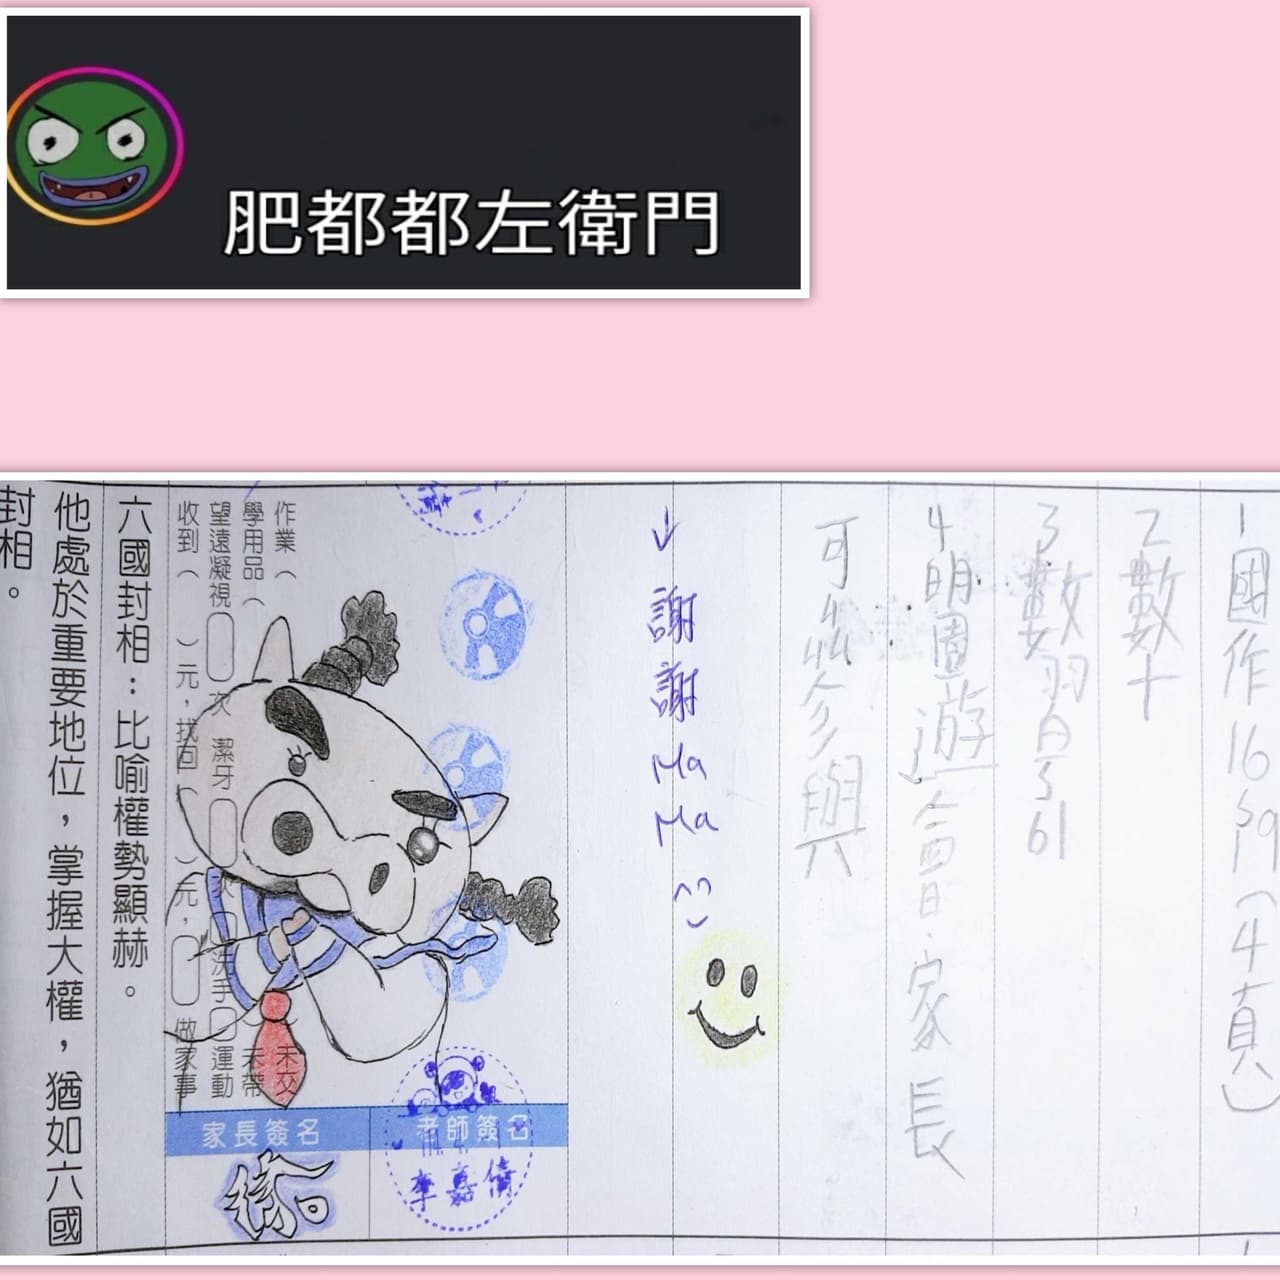 肥都都左衛門
1國作16、19(4頁)
2數十
3數習B5 61
4明園遊會四日.家長
可參與
↓謝謝MaMa^^
作業( 未交
學用品( 未帶
望遠凝視 次 潔牙 次 洗手 運動
收到( )元,找回( )元, 做家事
家長簽名
老師簽名
李嘉倩
六國封相:比喻權勢顯赫。
他處於重要地位,掌握大權,猶如六國
封相。